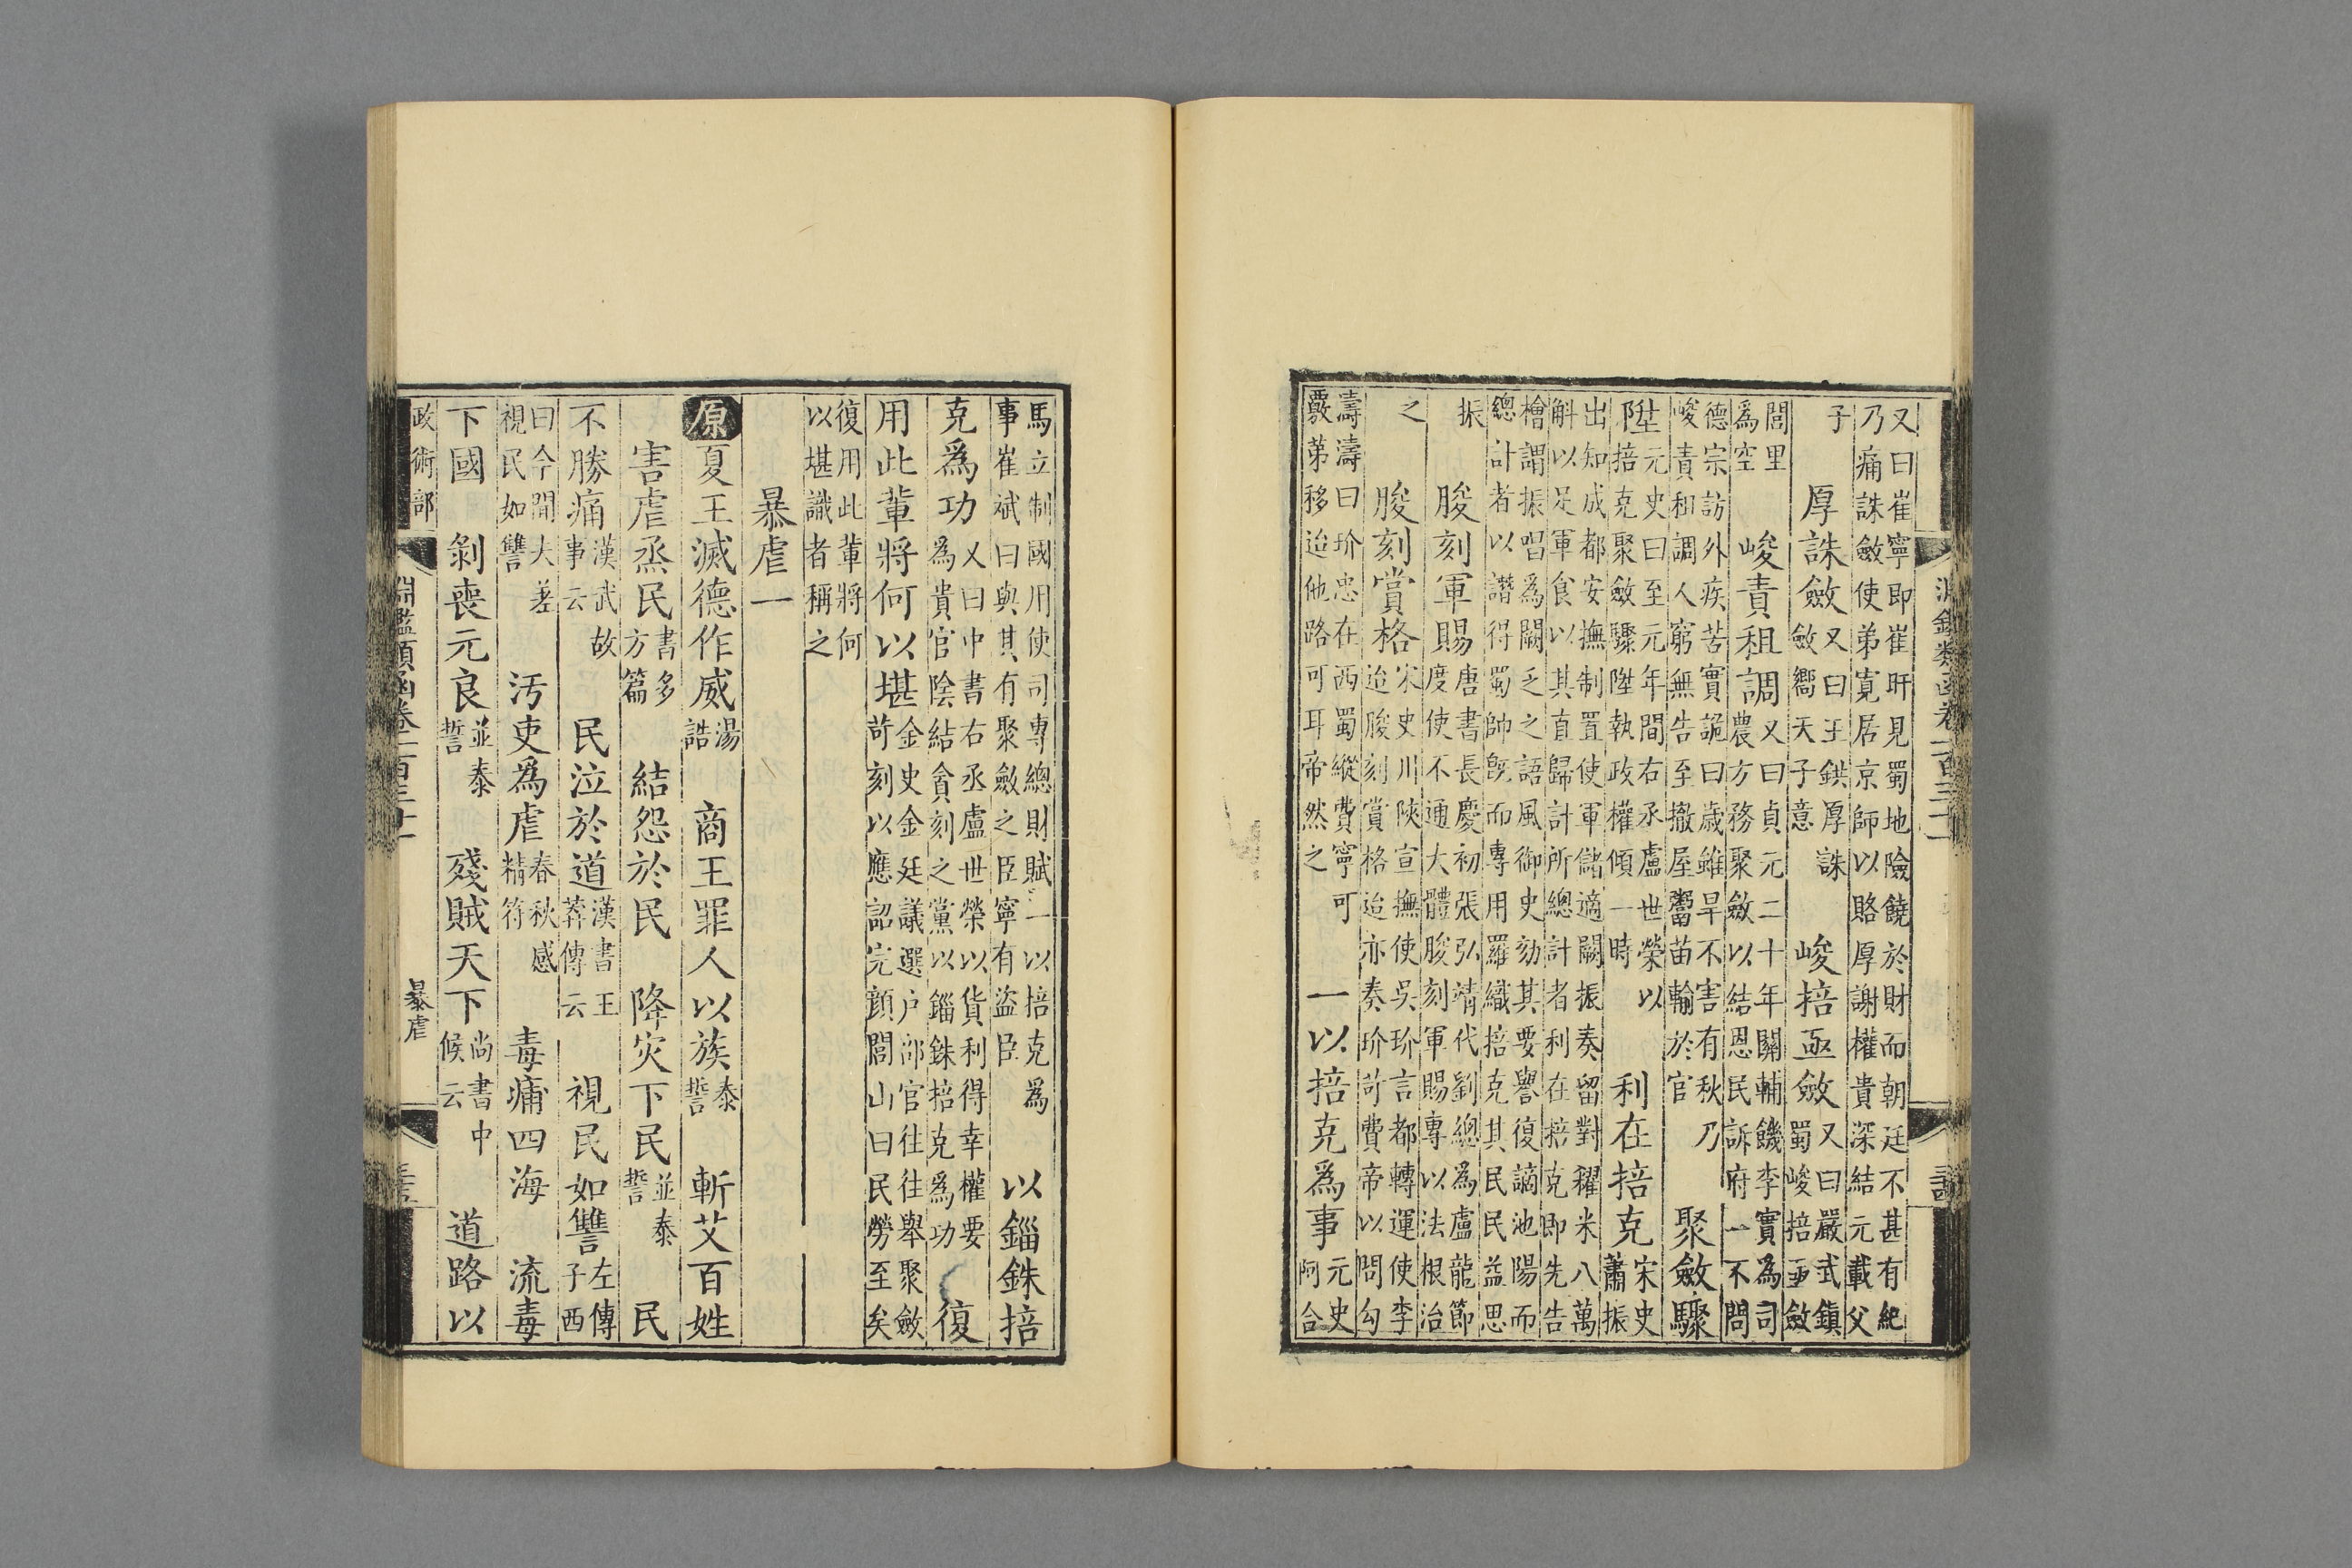 又曰崔寧即崔旰見蜀地險饒於財而朝廷不甚有紀乃痛誅斂使弟寛居京師以賂厚謝權貴深結元載父
子　厚誅斂又曰王鉷厚誅斂嚮天子意　峻掊亟斂又曰嚴武鎮蜀峻掊亟斂
閭里為空　峻責租調又曰貞元二十年關輔饑李實為司農方務聚斂以結恩民訴府一不問
德宗訪外疾苦實詭曰歲雖旱不害有秋乃峻責租調人窮無告至撤屋鬻苗輸於官　聚斂驟
陞元史曰至元年間右丞盧世榮以掊克聚斂驟陞執政權傾一時　利在掊克宋史蕭振
出知成都安撫制置使軍儲適闕振奏留對糴米八萬斛以足軍食以其直歸計所總計者利在掊克即先告
檜謂振唱為闕乏之語風御史劾其要譽復謫池陽而總計者以譖得蜀帥旣而專用羅織掊克其民民益思
振　朘刻軍賜唐書長慶初張弘靖代劉總為盧龍節度使不通大體朘刻軍賜專以法根治
之　朘刻賞格宋史川陝宣撫使吳玠言都轉運使李迨朘刻賞格迨亦奏玠苛費帝以問勾
濤濤曰玠忠在西蜀縱費寧可覈第移迨他路可耳帝然之　一以掊克爲事元史阿合
馬立制國用使司專總財賦一以掊克爲事崔斌曰與其有聚斂之臣寧有盜臣　以錙銖掊
克爲功又曰中書右丞盧世榮以貨利得幸權要為貴官陰結貪刻之黨以錙銖掊克爲功　復
用此輩將何以堪金史金廷議選户部官往往舉聚斂苛刻以應詔完顏閭山曰民勞至矣
復用此輩將何以堪識者稱之
暴虐一
原夏王滅德作威湯誥　商王罪人以族泰誓　斬艾百姓
害虐烝民書多方篇　結怨於民　降灾下民並泰誓　民
不勝痛漢武故事云　民泣於道漢書王莽傳云　視民如讐左傳子西
曰今聞夫差視民如讐　汚吏爲虐春秋感精符　毒痡四海　流毒
下國　剝喪元良並泰誓　殘賊天下尚書中候云　道路以
政術部　淵鑑類函卷一百三十一　暴虐